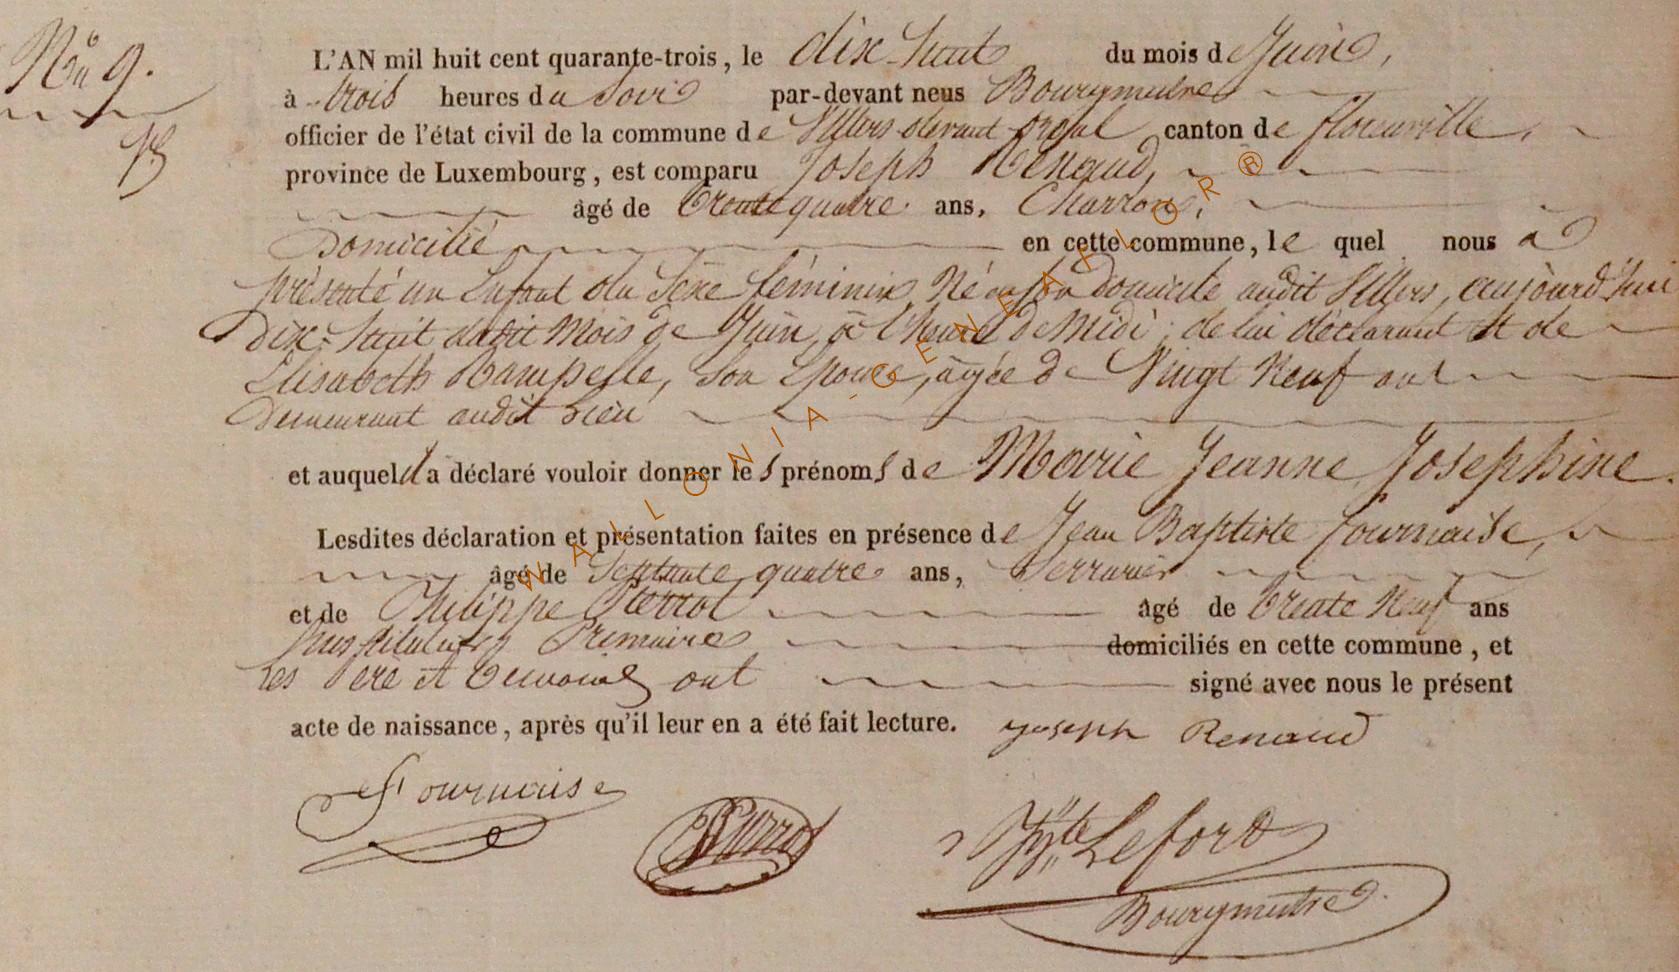 No 9.
L'AN mil huit cent quarante-trois, le dix-huit du mois de Juin,
à trois heures du Soir par-devant nous Bourgmestre
officier de l'état civil de la commune de Villers devant orval canton de florenville,
province de Luxembourg, est comparu Joseph Renaud,
âgé de trente quatre ans, Charron,
Domicilié en cette commune, le quel nous a
présenté un Enfant du Sexe féminin, Né en son domicile audit Villers, aujourd'huit
Dix-huit dudit Mois de Juin, à l'heure de Midi, de lui déclarant et de
Elisabeth Rampelle, son Epouse, agée de Vingt Neuf ans
Demeurant audit Lieu
et auquel il a déclaré vouloir donner les prénoms de Marie Jeanne Josephine.
Lesdites déclaration et présentation faites en présence de Jean Baptiste fournaise,
âgé de Septante quatre ans, Serrurier
et de Philippe Pierrot âgé de trente Neuf ans
Instituteur Primaire domiciliés en cette commune, et
les Père et temoins ont signé avec nous le présent
acte de naissance, après qu'il leur en a été fait lecture. joseph Renaud
Fournaise
Pierrot
Hyte Lefort
Bourgmestre
WALLONIA-GENEAFLOR®